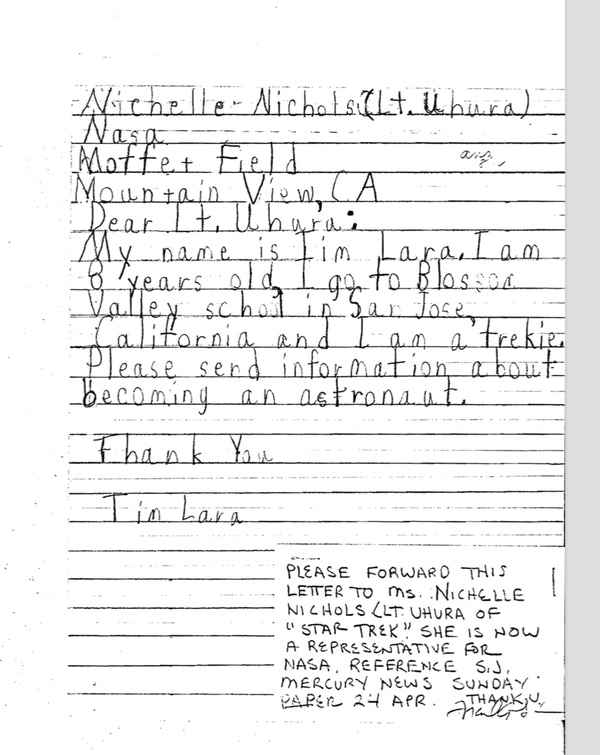 Nichelle-Nichols(Lt. Uhura)
Nasa
Moffet Field
Mountain View, CA
Dear Lt. Uhura:
My name is Tim Lara. I am
8 years old, I go to Blosson
Valley school in San Jose,
California and I am a "trekie.
Please send information about
becoming an astronaut.
Thank You
Tim Lara
PLEASE FORWARD THIS
LETTER TO MS. NICHELLE
NICHOLS (LT. UHURA OF
"STAR TREK". SHE IS NOW
A REPRESENTATIVE FOR
NASA, REFERENCE S.J.
MERCURY NEWS SUNDAY
PAPER 24 APR. THANK U,